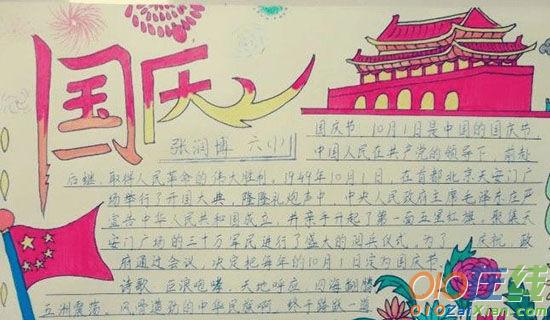 国庆
张润博 六(1)
国庆节, 10月1日是中国的国庆节,
中国人民在共产党的领导下, 前赴
后继, 取得人民革命的伟大胜利, 1949年10月1日, 在首都北京天安门广
场举行了开国大典, 隆隆礼炮声中, 中央人民政府主席毛泽东庄严
宣告中华人民共和国成立, 并亲手升起了第一面五星红旗, 聚集天
安门广场的三十万军民进行了盛大的阅兵仪式, 为了 庆祝, 政
府通过会议 决定把每年的10月1日定为国庆节.
诗歌, 巨浪咆哮, 天地呼应, 四海翻腾
五洲震荡, 风雪造就的中华民族啊 终于
010在线
010ZaiXian.com